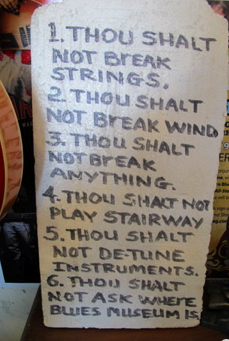 1. THOU SHALT
NOT BREAK
STRINGS.
2. THOU SHALT
NOT BREAK WIND
3. THOU SHALT
NOT BREAK
ANYTHING.
4. THOU SHALT NOT
PLAY STAIRWAY
5. THOU SHALT
NOT DE-TUNE
INSTRUMENTS.
6. THOU SHALT
NOT ASK WHERE
BLUES MUSEUM IS